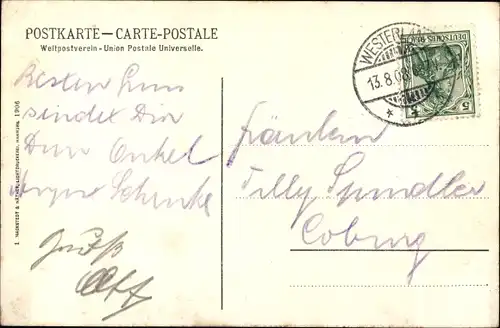 POSTKARTE – CARTE-POSTALE
Weltpostverein - Union Postale Universelle.
Besten Gruss
sendet Dir
Dein Onkel
Gruß
Otto
1906
WESTERLAND
13.8.08
DEUTSCHES REICH
5 5
Fräulein
Tilly Spindler
Coburg